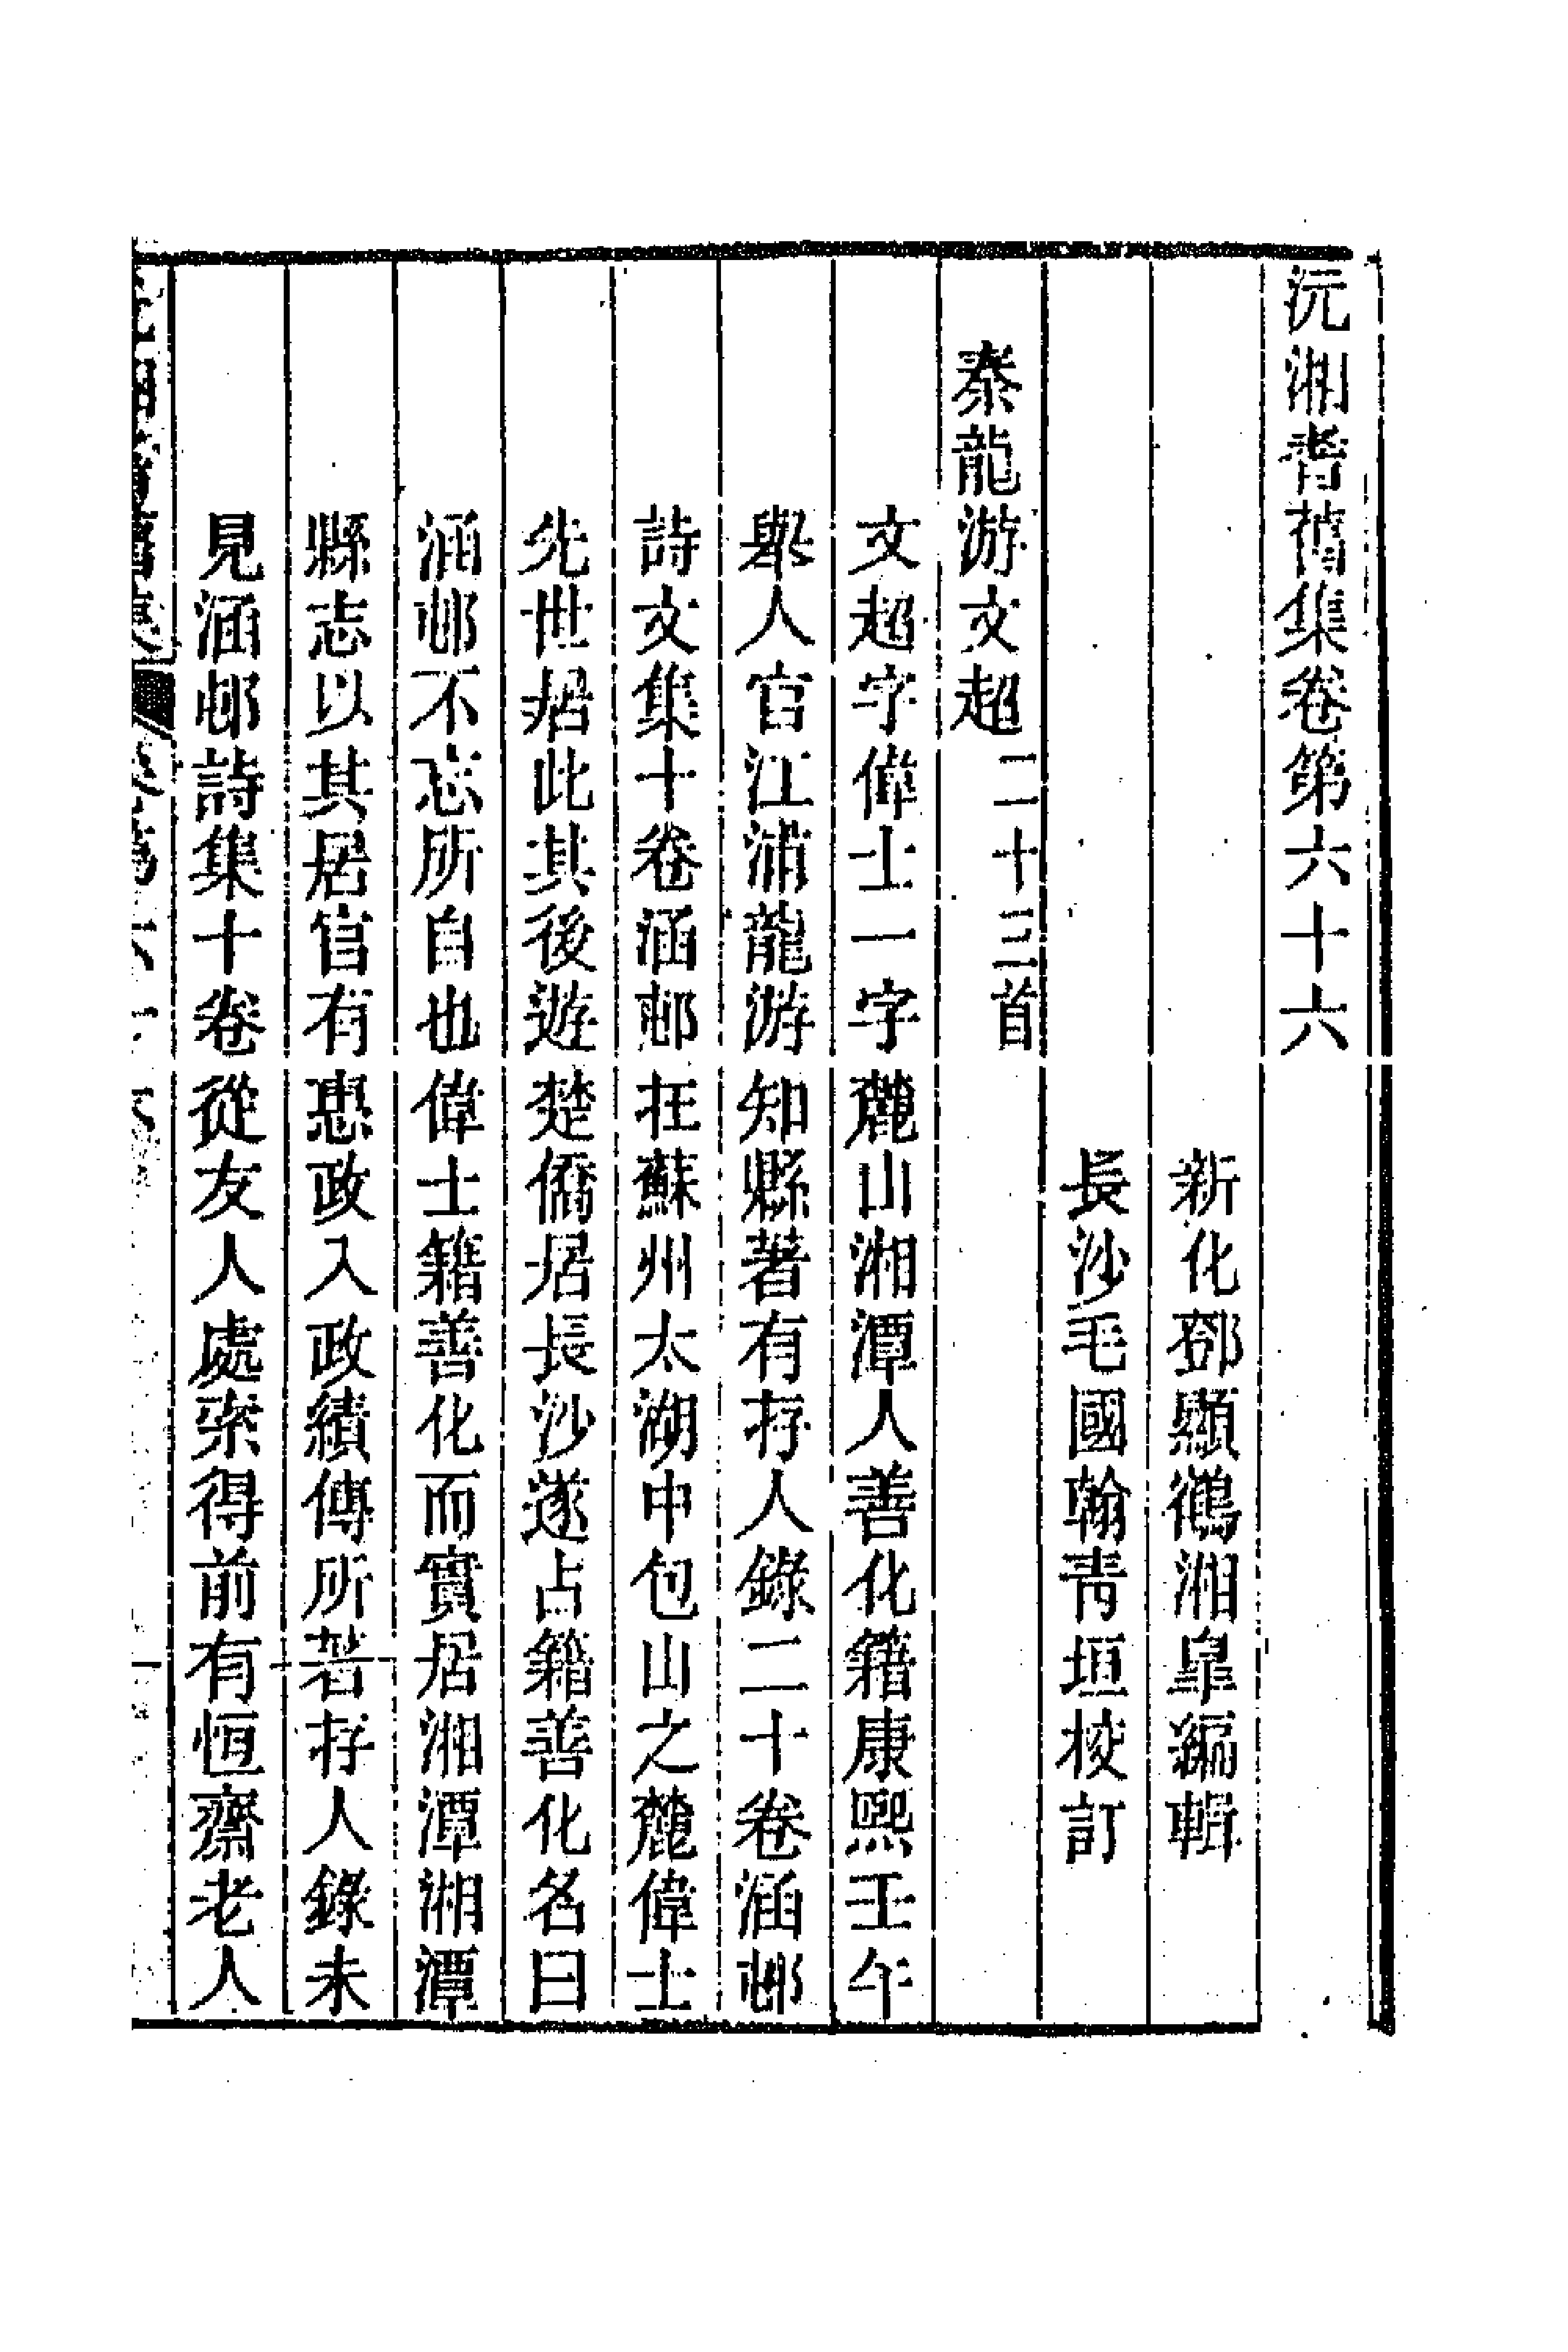 沅湘耆舊集卷第六十六
新化鄧顯鶴湘皋編輯
長沙毛國翰青垣校訂
秦龍游文超二十三首
文超字偉士一字麓山湘潭人善化籍康熙壬午
舉人官江浦龍游知縣著有存人錄二十卷涵邨
詩文集十卷涵邨在蘇州太湖中包山之麓偉士
先世居此其後遊楚僑居長沙遂占籍善化名曰
涵邨不忘所自也偉士籍善化而實居湘潭湘潭
縣志以其居官有惠政入政績傳所著存人錄未
見涵邨詩集十卷從友人處索得前有恆齋老人